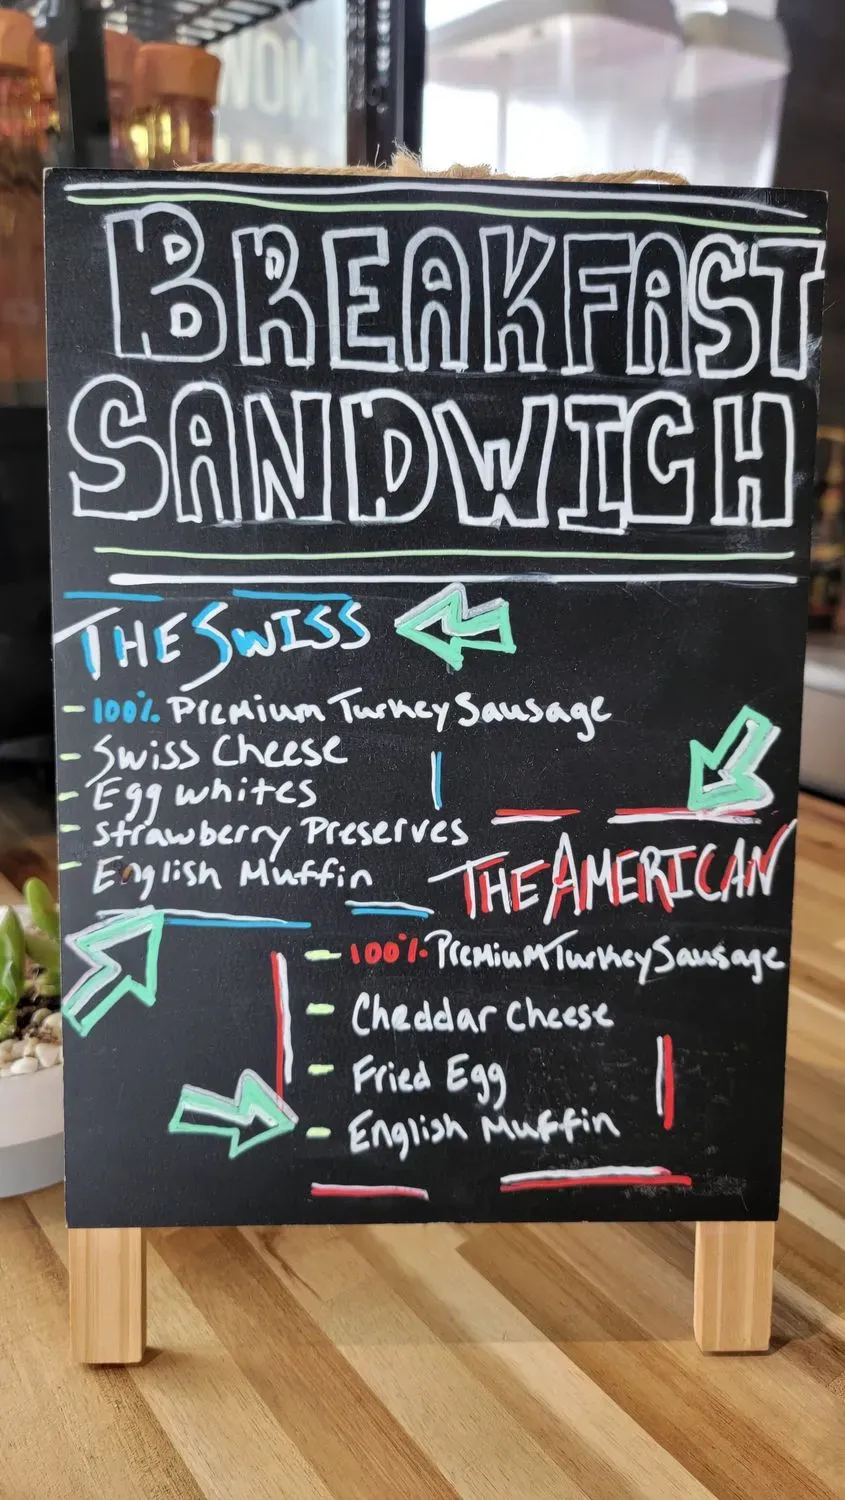 NOW
BREAKFAST
SANDWICH
THE SWISS
- 100% Premium Turkey Sausage
- Swiss Cheese
- Egg whites
- Strawberry Preserves
- English Muffin
THE AMERICAN
- 100% Premium Turkey Sausage
- Cheddar Cheese
- Fried Egg
- English Muffin